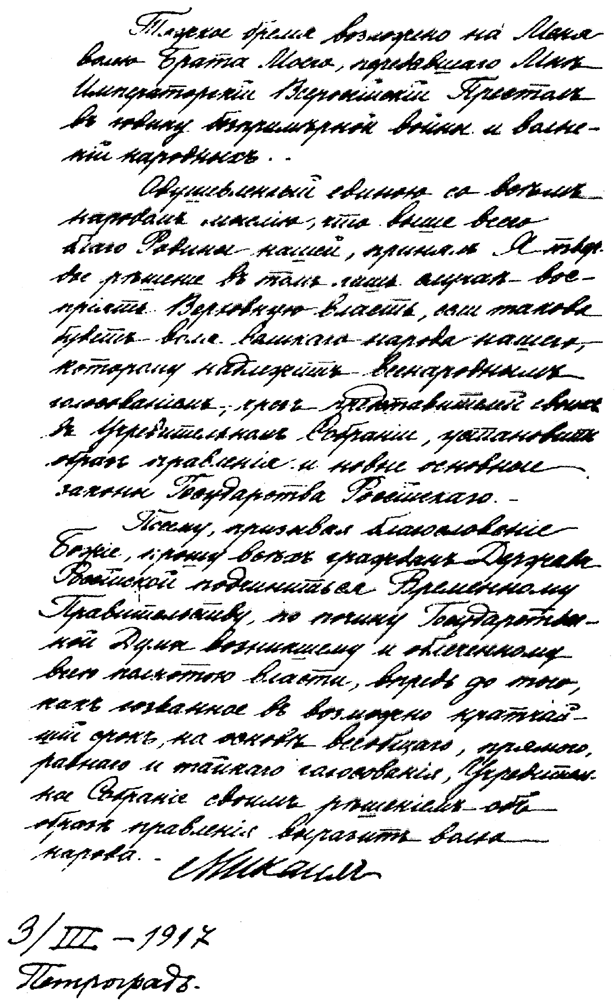 Тяжкое бремя возложено на Меня
волею Брата Моего, передавшего Мнѣ
Императорскій Всероссійскій Престолъ
въ годину безпримѣрной войны и волне-
ній народныхъ.
Одушевленный единою со всѣмъ
народомъ мыслію, что выше всего
благо Родины нашей, принялъ Я твер-
дое рѣшеніе въ томъ лишь случаѣ вос-
пріять Верховную власть, если такова
будетъ воля великаго народа нашего,
которому надлежитъ всенароднымъ
голосованіемъ, чрезъ представителей своихъ
въ Учредительномъ Собраніи, установить
образъ правленія и новые основные
законы Государства Россійскаго.
Посему, призывая благословеніе
Божіе, прошу всѣхъ гражданъ Державы
Россійской подчиниться Временному
Правительству, по почину Государствен-
ной Думы возникшему и облеченному
всею полнотою власти, впредь до того,
какъ созванное въ возможно кратчай-
шій срокъ, на основѣ всеобщаго, прямого,
равнаго и тайнаго голосованія, Учредитель-
ное Собраніе своимъ рѣшеніемъ объ
образѣ правленія выразитъ волю
народа.
Михаилъ
3/III – 1917
Петроградъ.